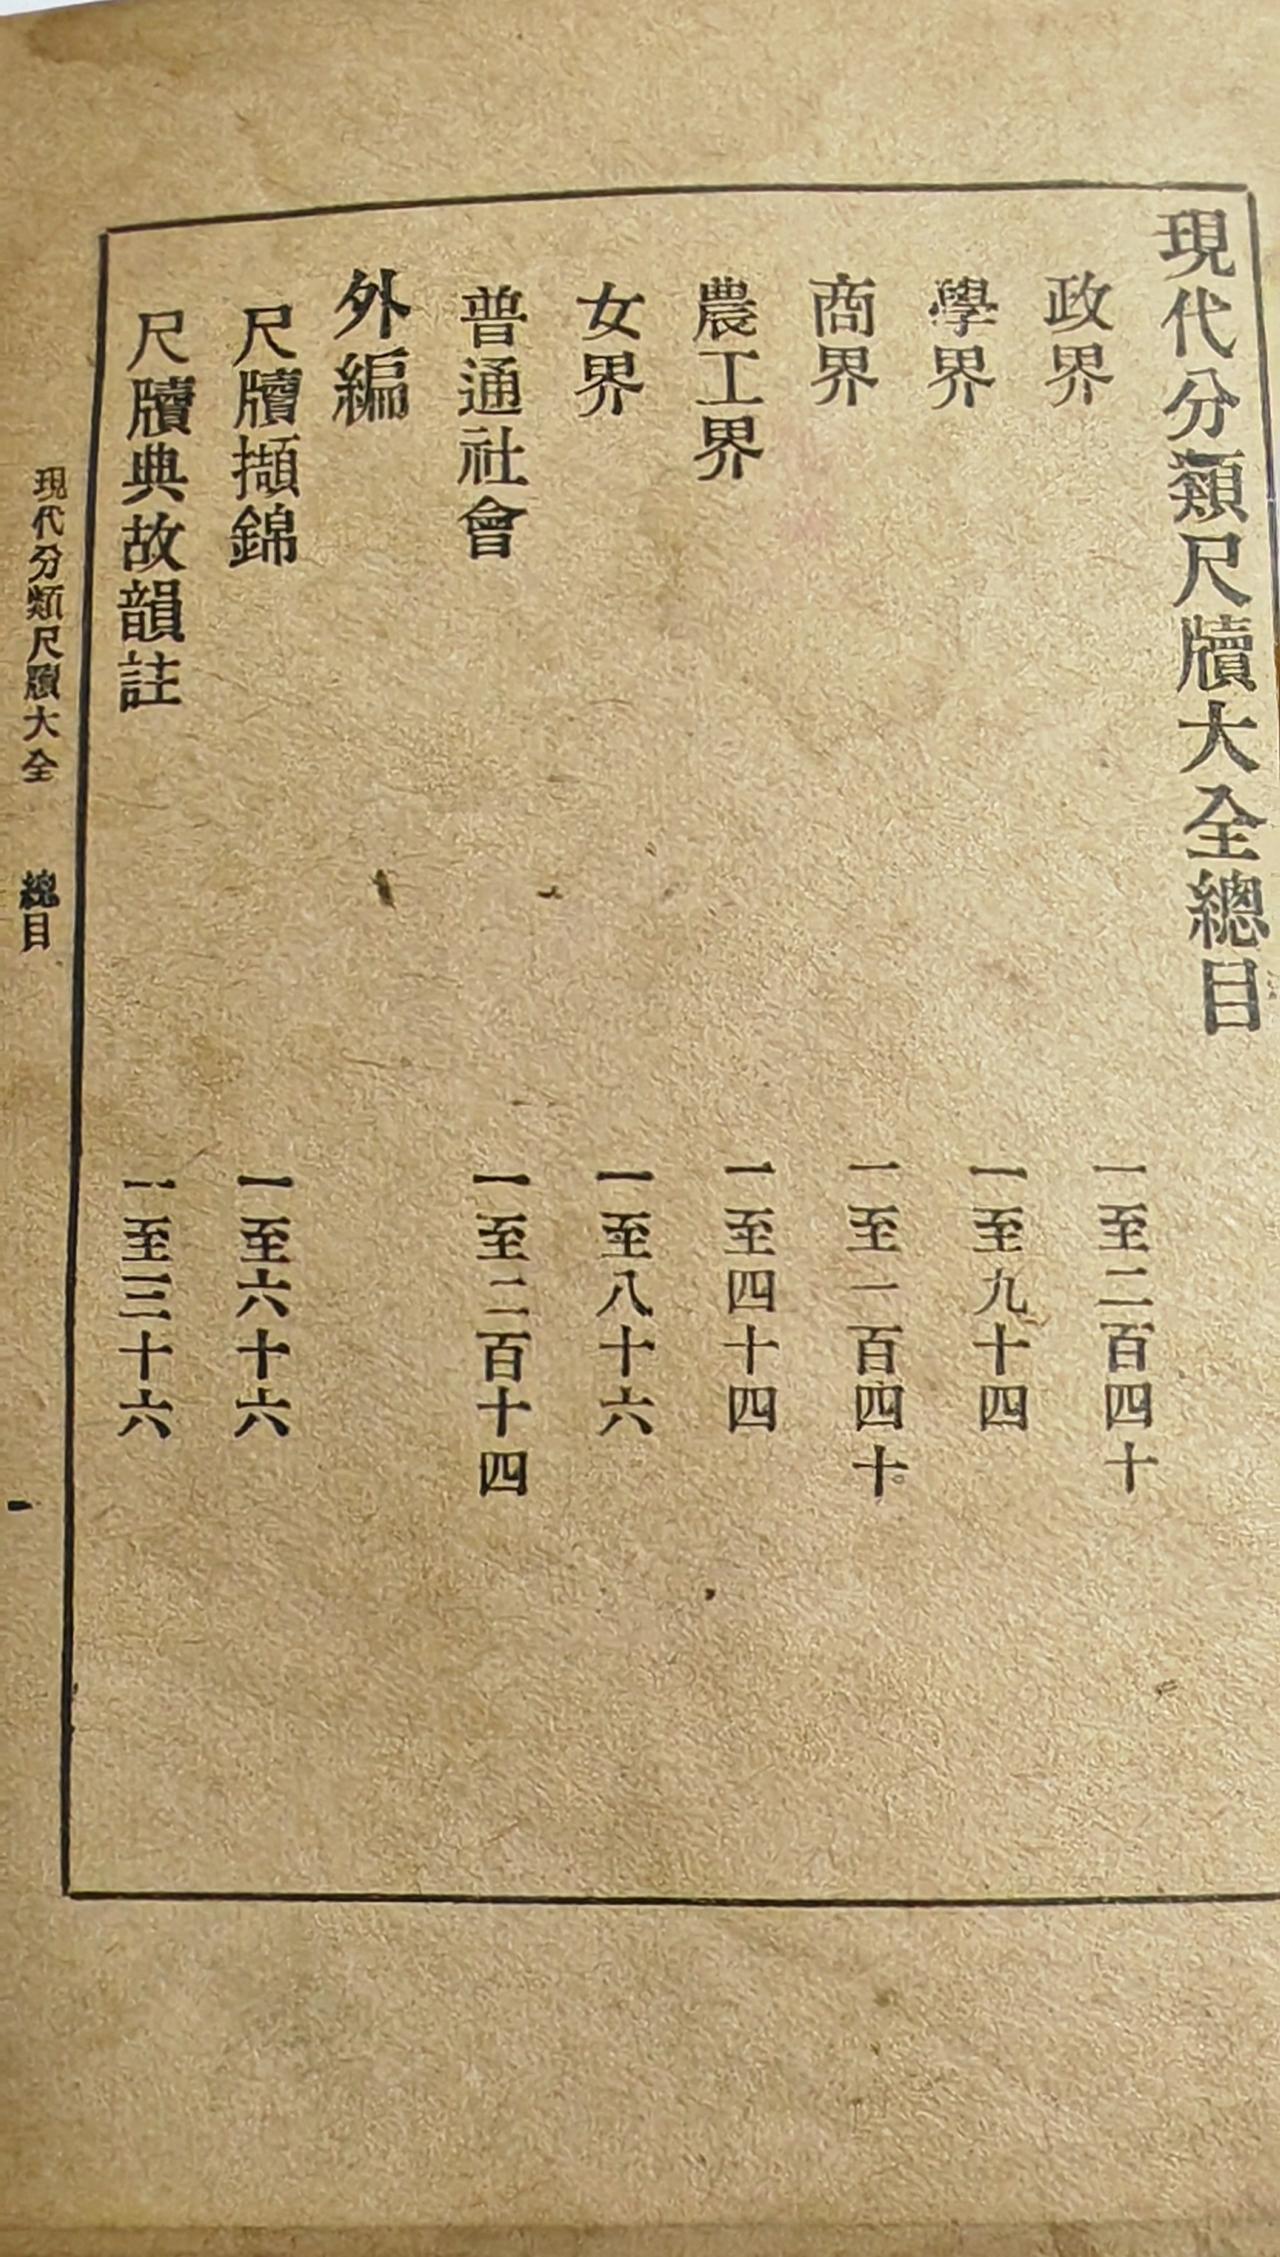 現代分類尺牘大全總目
政界 一至二百四十
學界 一至九十四
商界 一至一百四十
農工界 一至四十四
女界 一至八十六
普通社會 一至二百十四
外編
尺牘擷錦 一至六十六
尺牘典故韻註 一至三十六
現代分類尺牘大全 總目 一